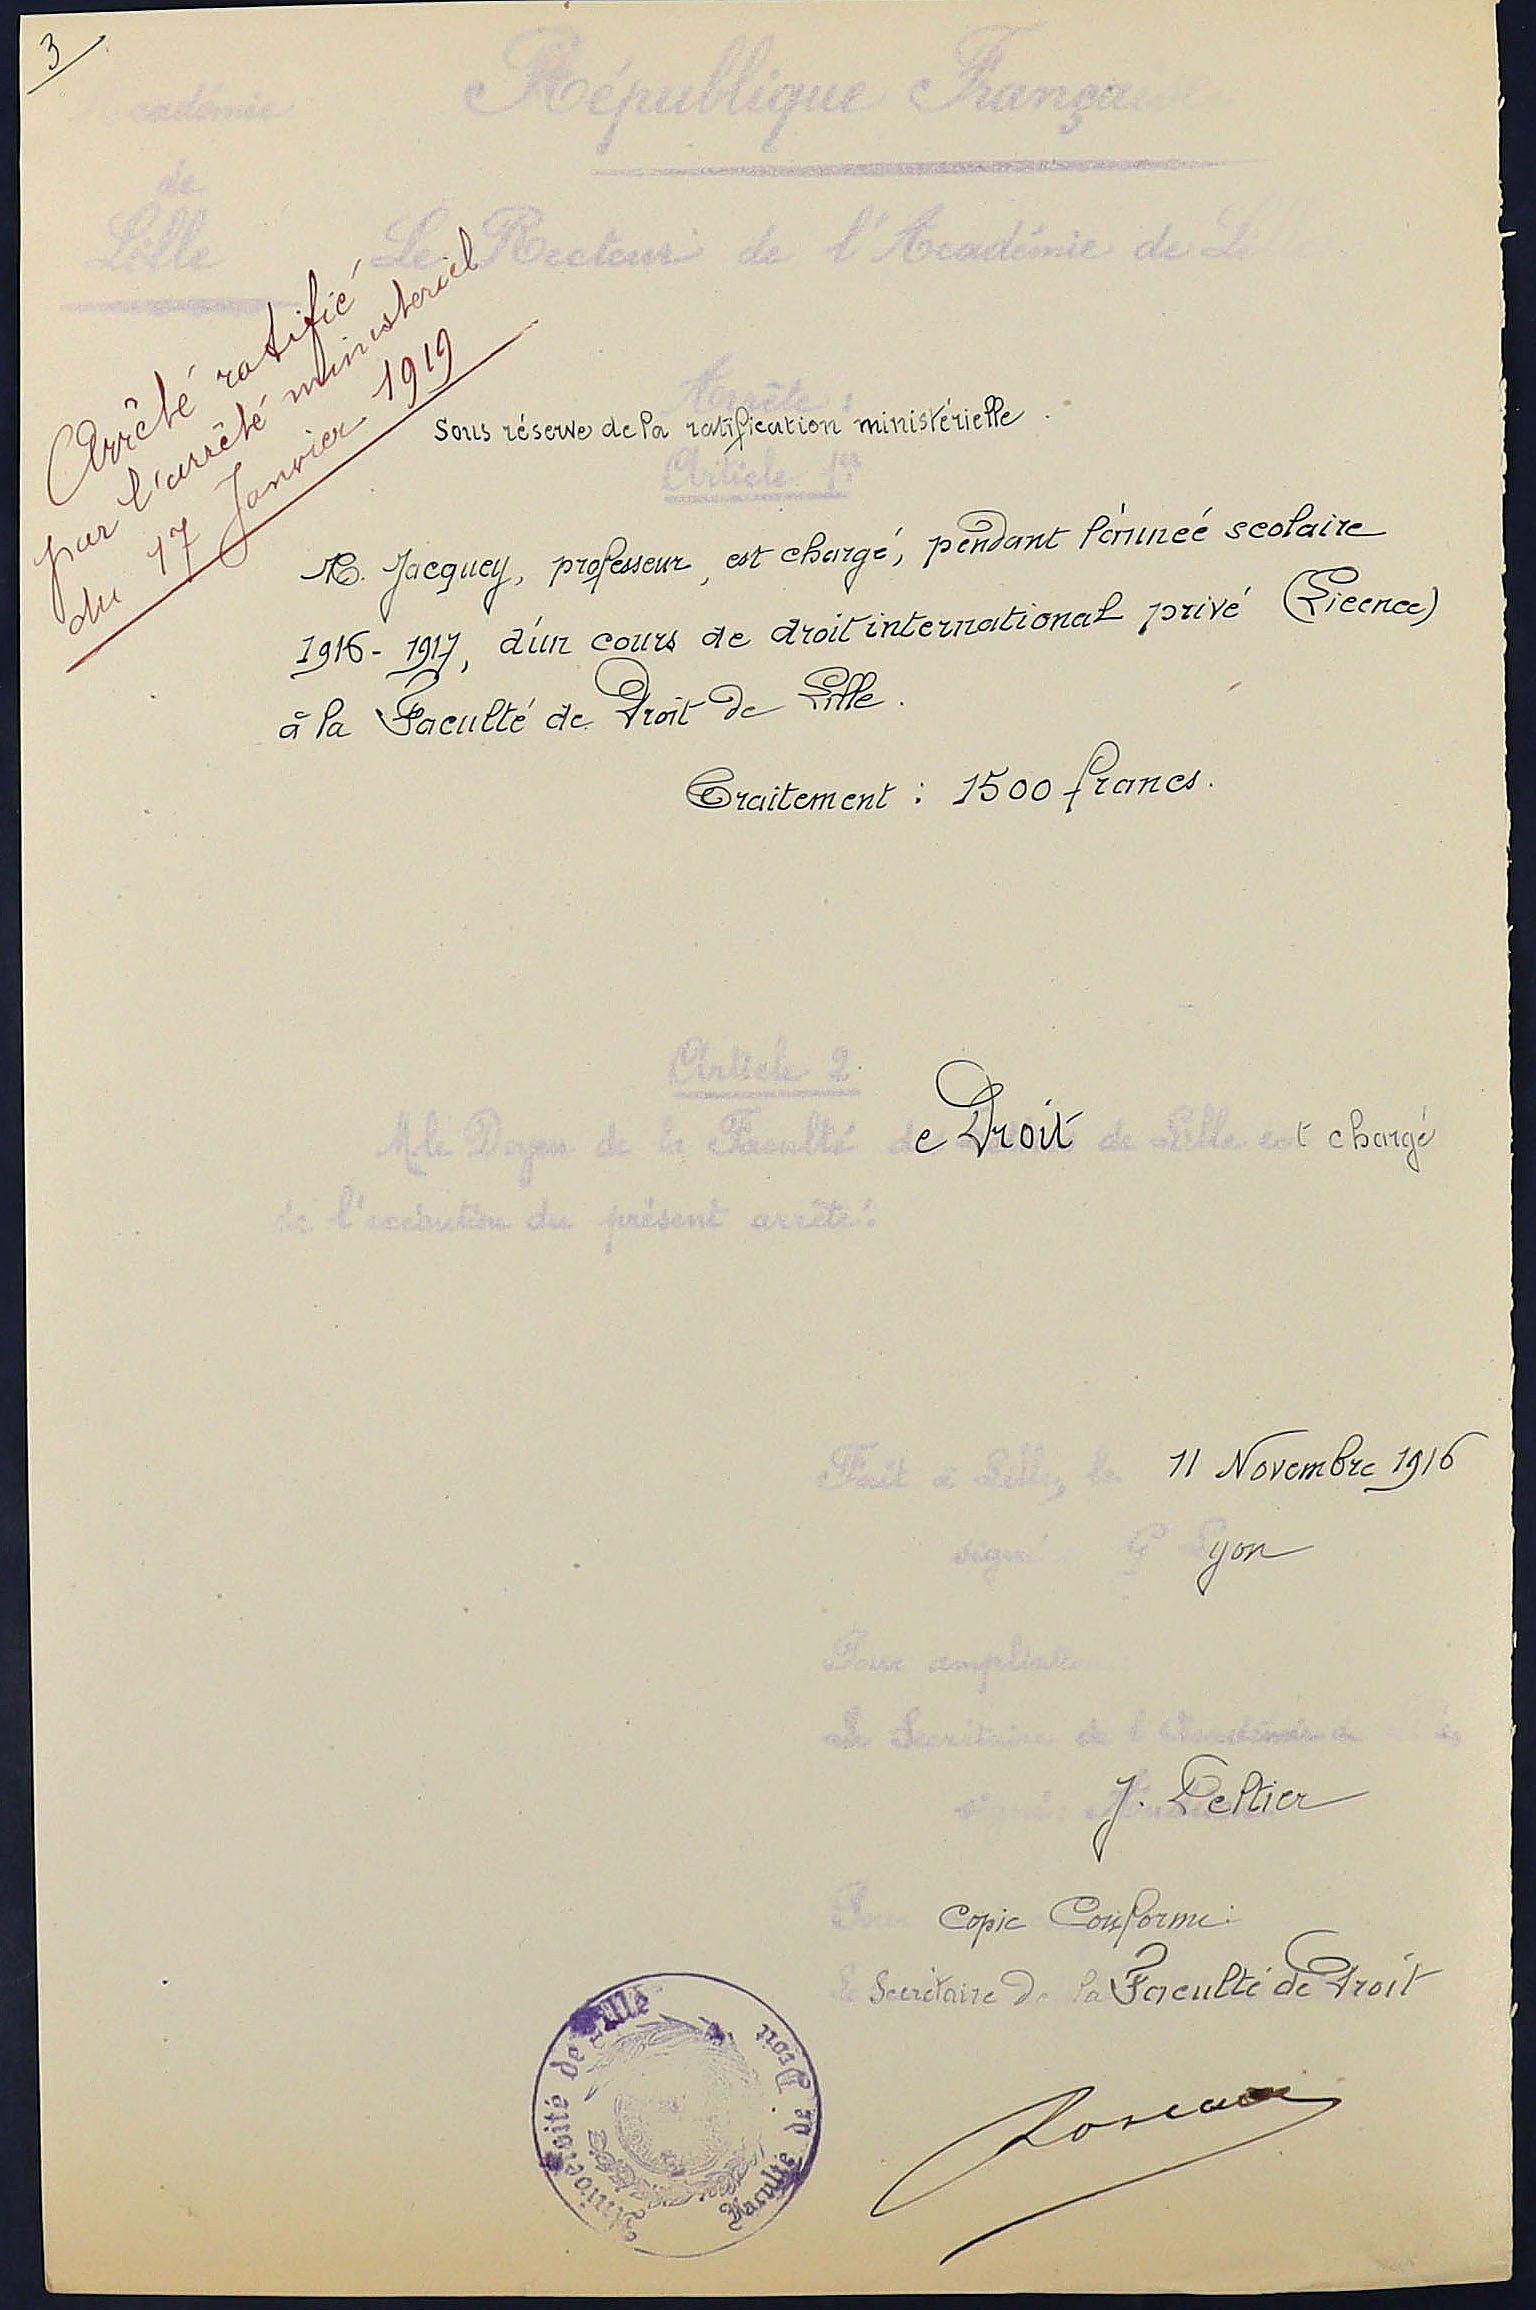 3
République Française
Académie
de
Lille
Le Recteur de l'Académie de Lille
Arrêté ratifié
par l'arrêté ministeriel
du 17 Janvier 1919
Arrête :
Sous réserve de la ratification ministérielle.
Article 1er
M. Jacquey, professeur, est chargé, pendant l'année scolaire
1916-1917, d'un cours de droit international privé (Licence)
à la Faculté de Droit de Lille.
Traitement : 1500 francs.
Article 2.
M. le Doyen de la Faculté de Droit de Lille est chargé
de l'exécution du présent arrêté.
Fait à Lille, le 11 Novembre 1916
signé G Lyon
Pour ampliation :
Le Secrétaire de l'Académie
signé : J. Peltier
Pour Copie Conforme :
Le Secrétaire de la Faculté de Droit
Université de Lille
Faculté de Droit